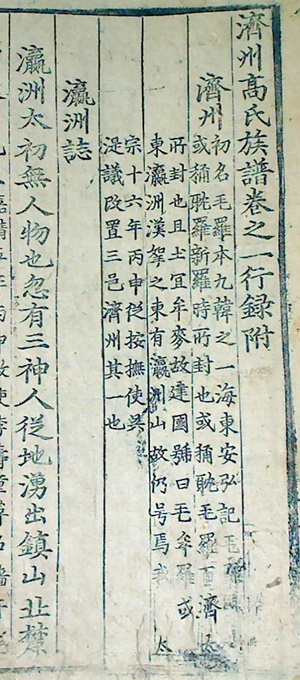 濟州髙氏族譜卷之一行録附
濟州
初名毛羅本九韓之一海東安弘記毛羅
或稱耽羅新羅時所封也或稱耽毛羅百濟
所封也且土宜牟麥故建國號曰毛牟羅或
東瀛洲漢拏之東有瀛洲山故仍号焉我太
宗十六年丙申從按撫使吳
湜議改置三邑濟州其一也
瀛洲誌
瀛洲太初無人物也忽有三神人從地湧出鎮山北麓